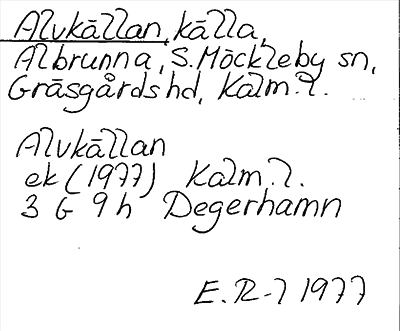 Alvkällan, källa,
Albrunna, S. Möckleby sn,
Gräsgårds hd, Kalm. l.
Alvkällan
ek (1977) Kalm. l.
3 G 9 h Degerhamn
E. R-l 1977